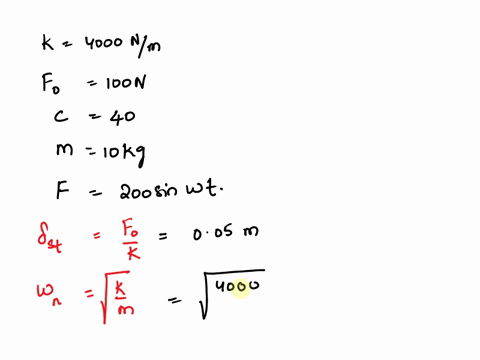 k = 4000 N/m
F₀ = 100N
C = 40
m = 10kg
F = 200 sin wt.
δst = F₀/K = 0.05 m
ωn = √(k/m) = √4000